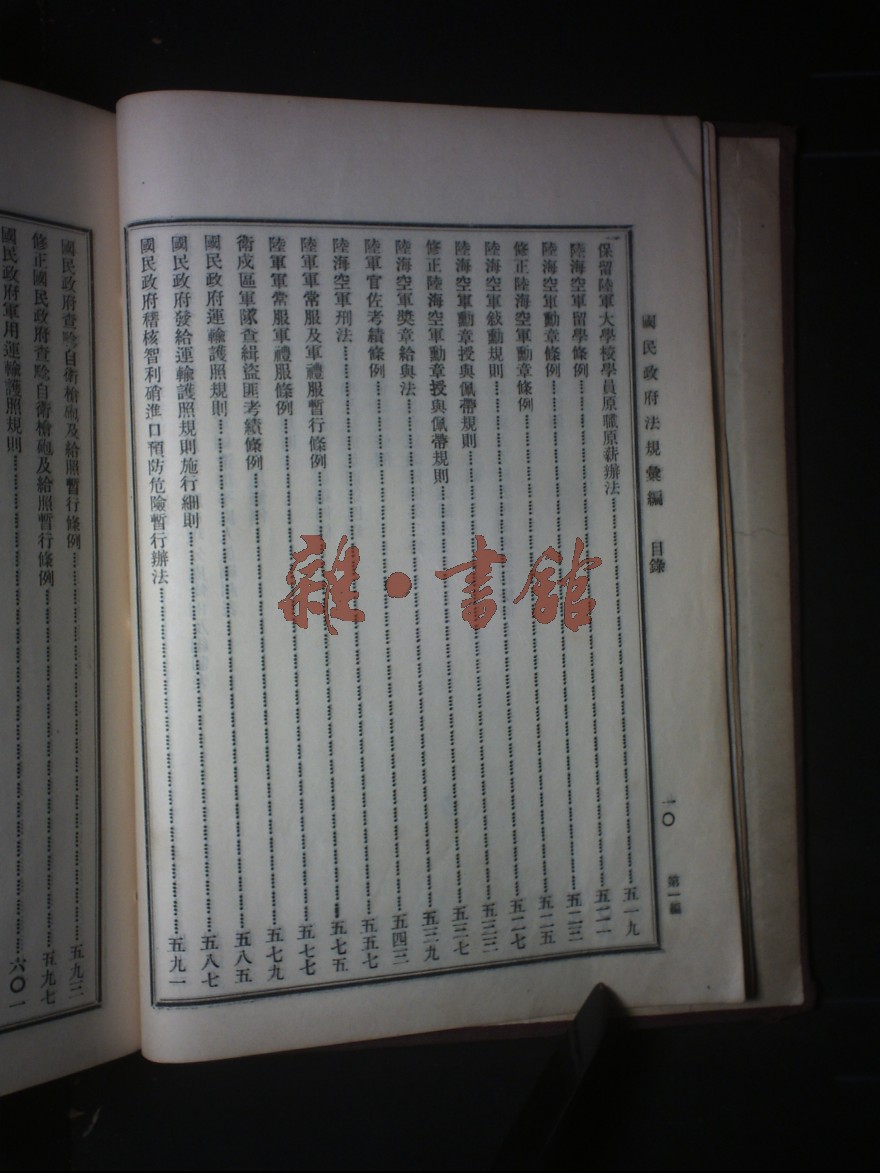 國民政府法規彙編 目錄 一〇 第一編
保留陸軍大學校學員原職原薪辦法 五一九
陸海空軍留學條例 五二一
陸海空軍勳章條例 五二三
修正陸海空軍勳章條例 五二五
陸海空軍敍勳規則 五二七
陸海空軍勳章授與佩帶規則 五三三
修正陸海空軍勳章授與佩帶規則 五三七
陸海空軍獎章給與法 五三九
陸軍官佐考績條例 五四三
陸海空軍刑法 五五七
陸軍軍常服及軍禮服暫行條例 五七五
陸軍軍常服軍禮服條例 五七七
衛戍區軍隊查緝盜匪考績條例 五七九
國民政府運輸護照規則 五八五
國民政府發給運輸護照規則施行細則 五八七
國民政府稽核智利硝進口預防危險暫行辦法 五九一
國民政府查驗自衛槍砲及給照暫行條例 五九三
修正國民政府查驗自衛槍砲及給照暫行條例 五九七
國民政府軍用運輸護照規則 六〇一
雜·書館